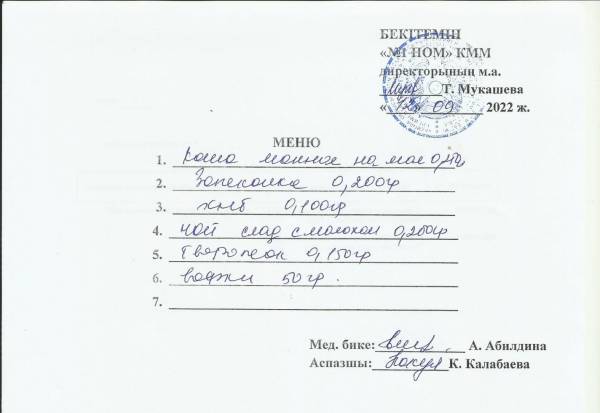 БЕКІТЕМІН
«№1 НОМ» КММ
директорының м.а.
Т. Мукашева
« 09 2022 ж.
МЕНЮ
1. Каша манная на мол
2. Запеканка 0,200гр
3. хлеб 0,100гр
4. чай слад с молоком 0,200гр
5. Творожок 0,150гр
6. 50гр.
7.
Мед. бике: А. Абилдина
Аспазшы: К. Калабаева